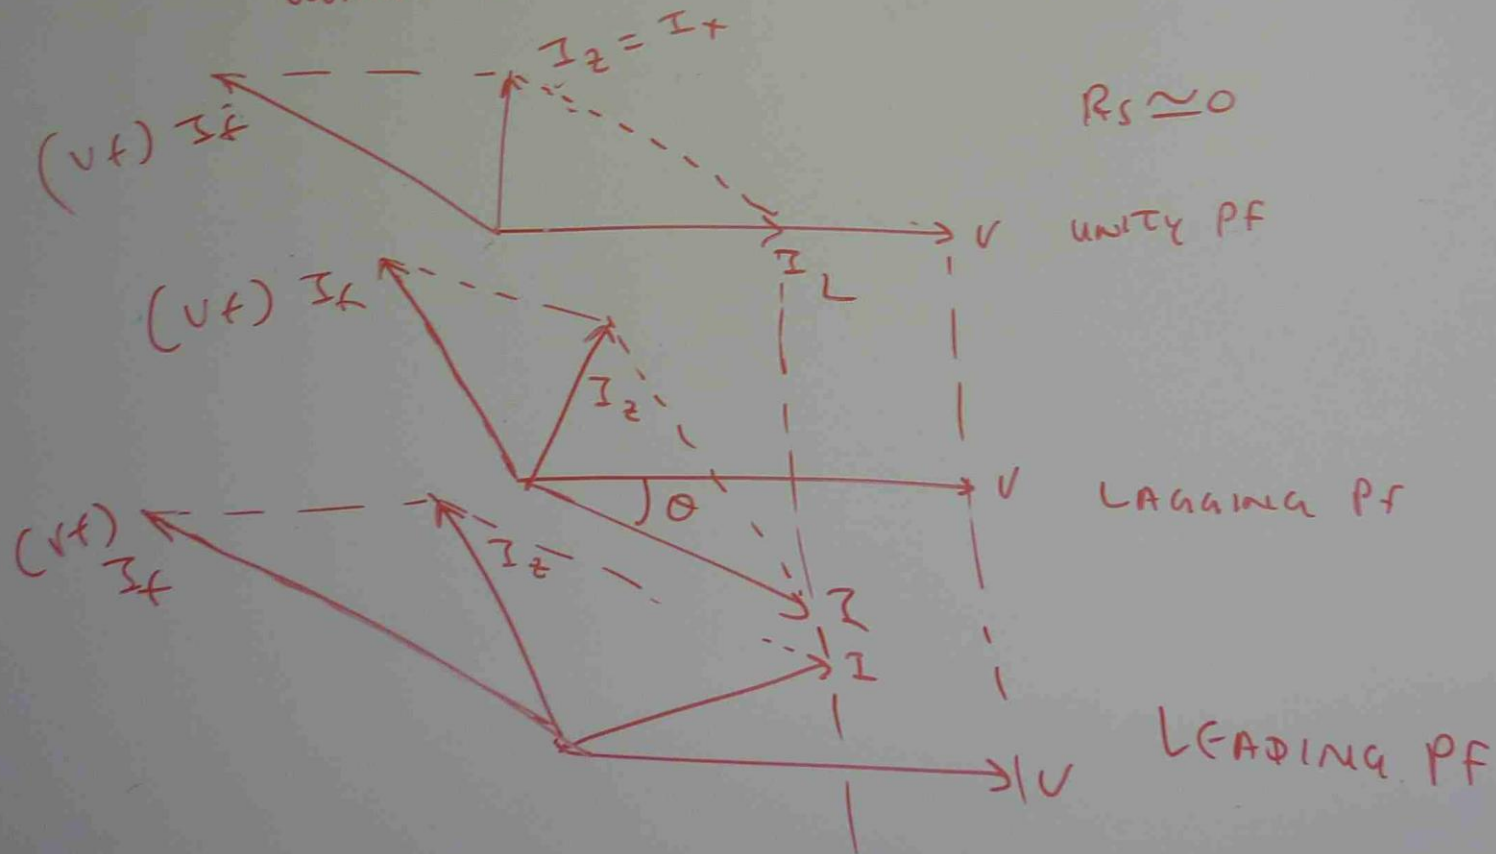 I_z = I_x
Rs ≃ 0
(vf) If
V
UNITY PF
I_L
(vf) If
I_z
V
LAGGING PF
θ
(vf)
If
I_z
I
I
V
LEADING PF